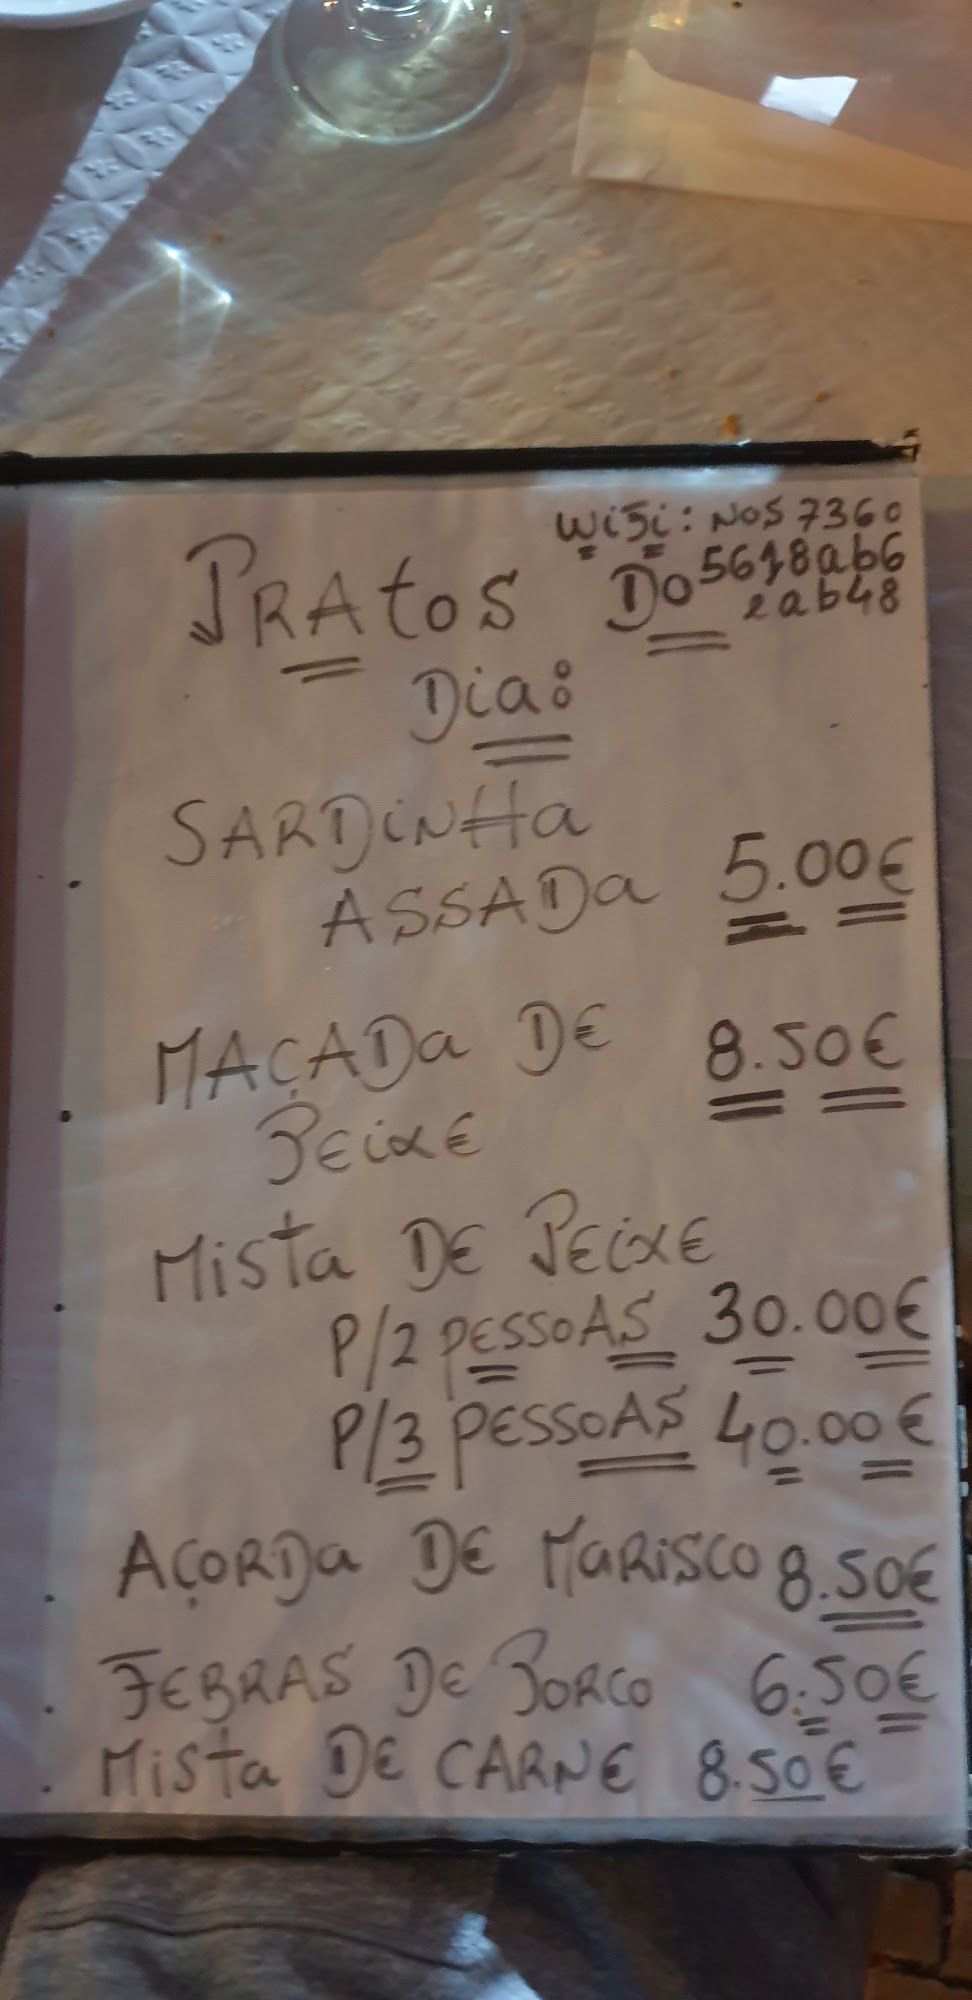 Wifi: NOS7360
5618ab6
2ab48
PRATOS DO
DIA:
SARDINHA
ASSADA 5.00€
MAÇADA DE 8.50€
PEIXE
MISTA DE PEIXE
P/2 PESSOAS 30.00€
P/3 PESSOAS 40.00€
. AÇORDA DE MARISCO 8.50€
. FEBRAS DE PORCO 6.50€
. MISTA DE CARNE 8.50€